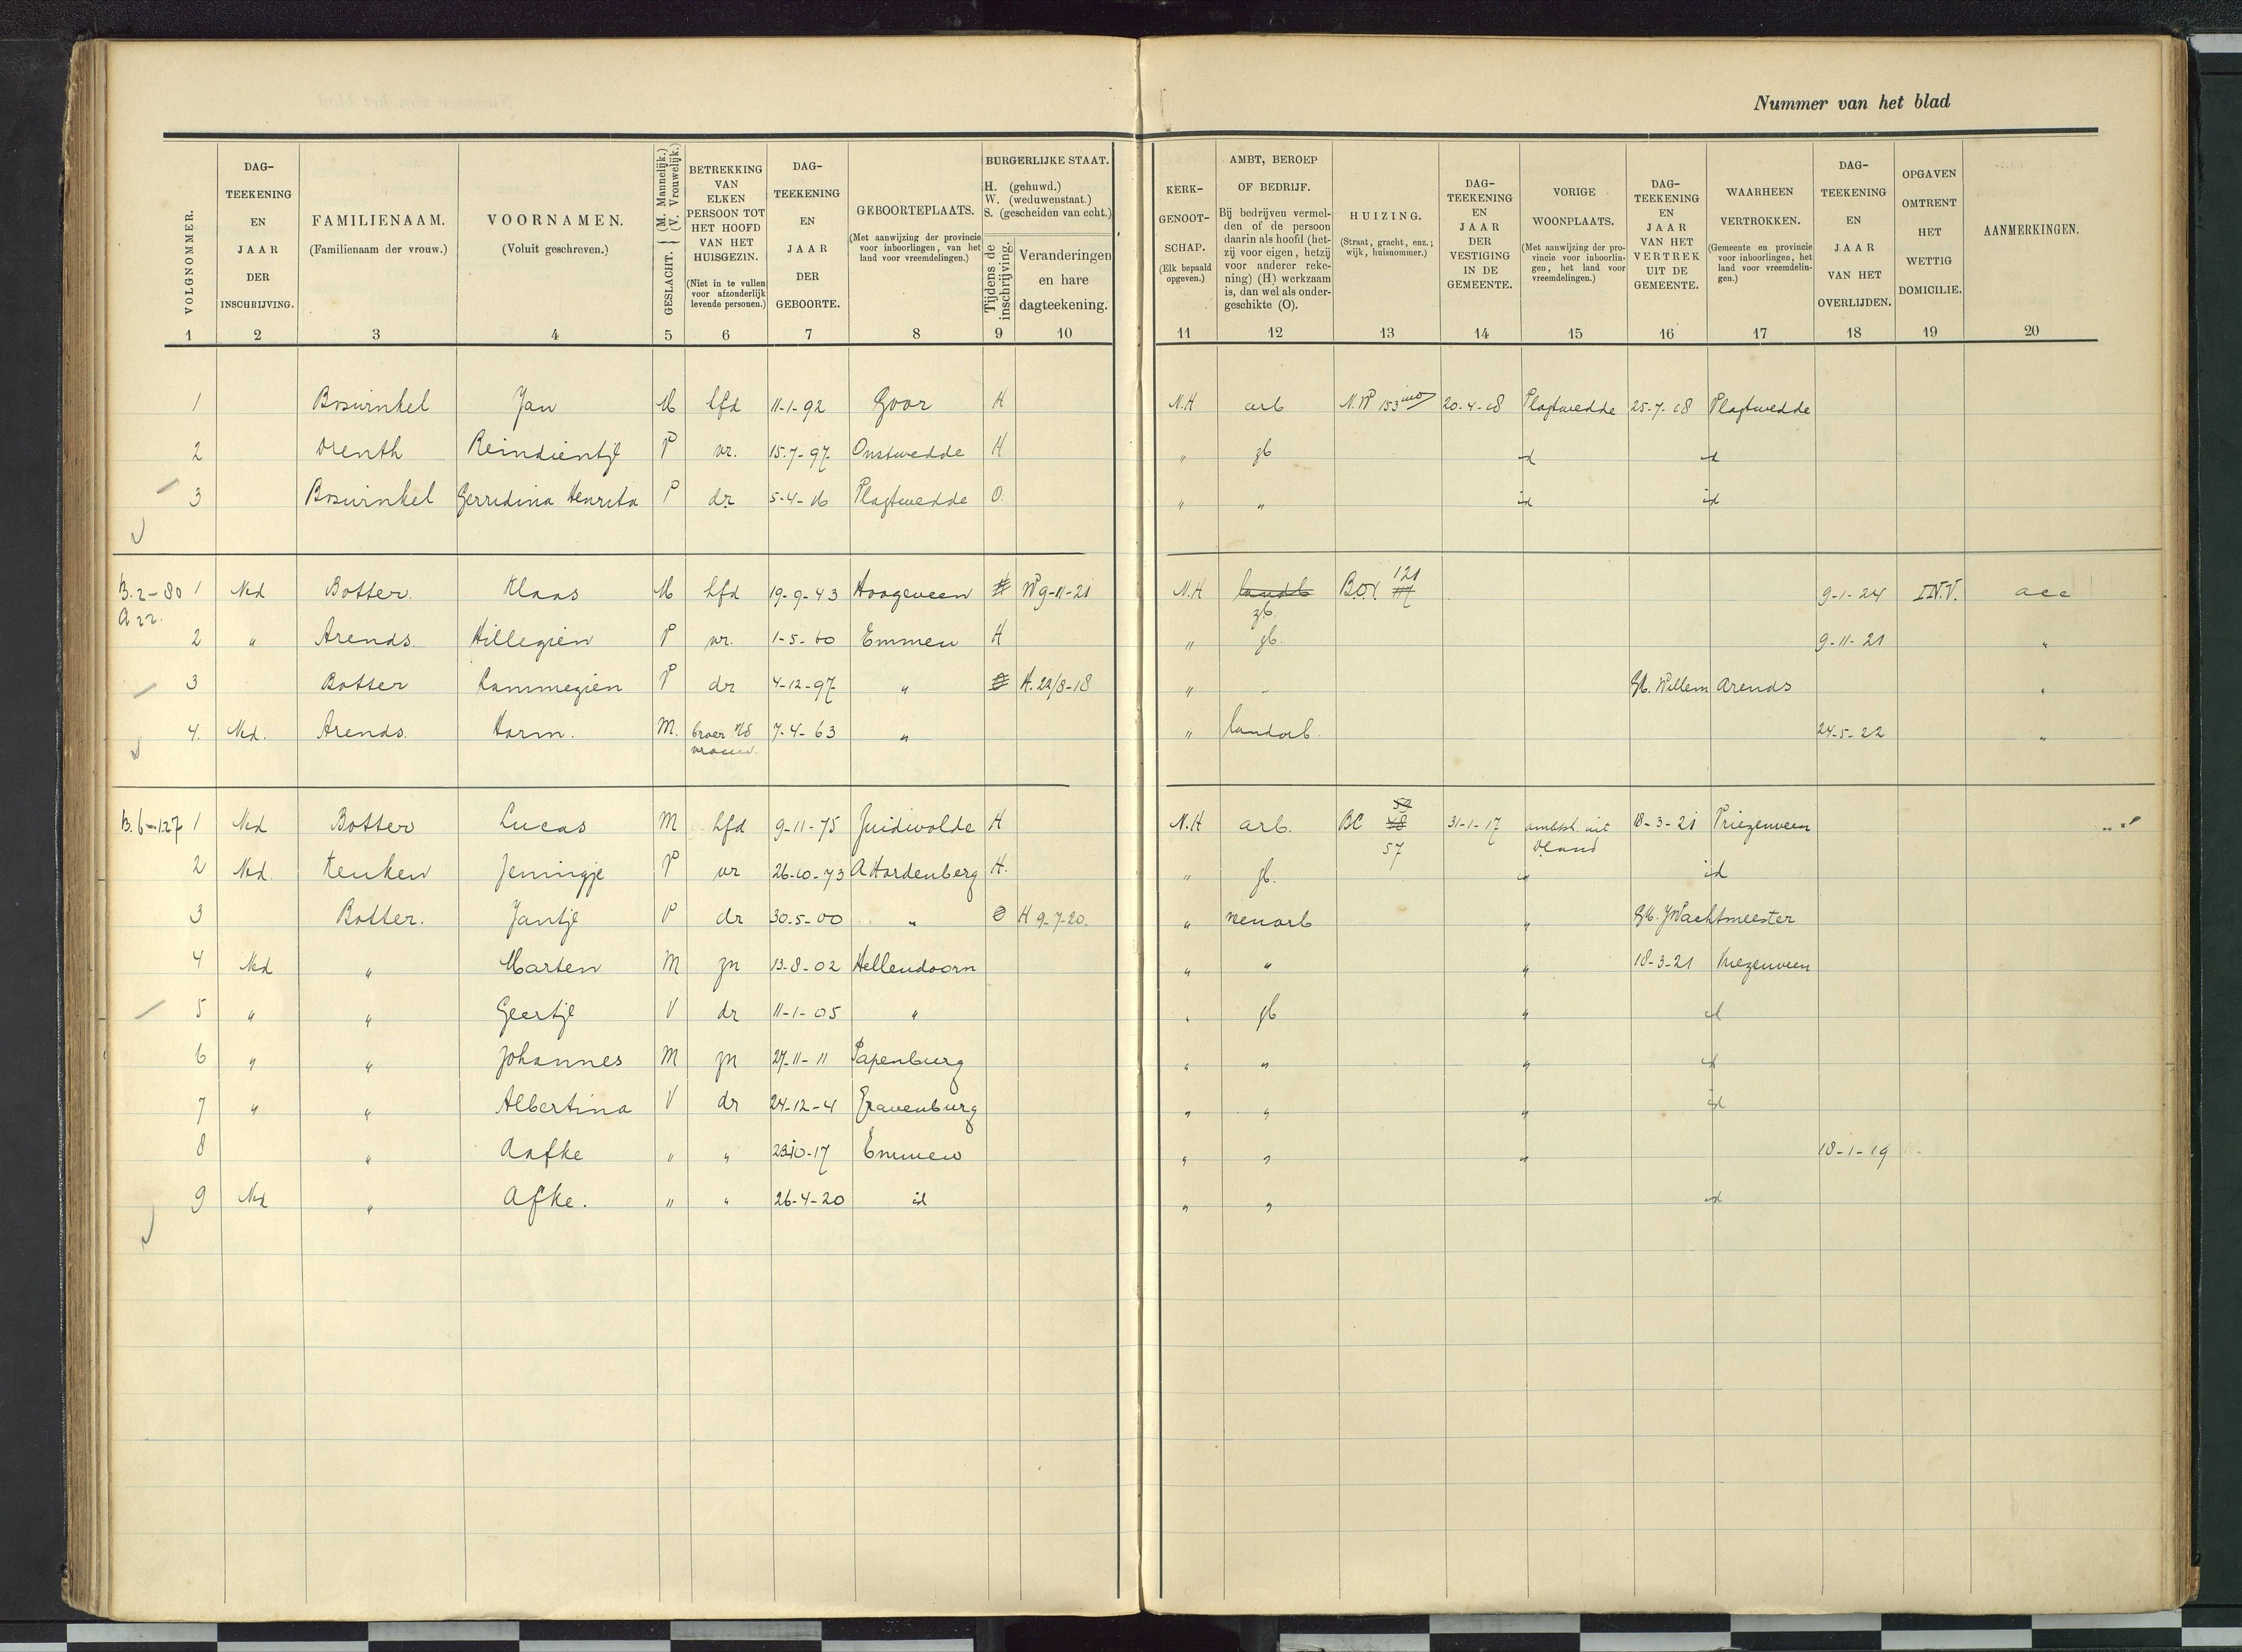 Nummer van het blad
VOLGNOMMER. DAG-TEEKENING EN JAAR DER INSCHRIJVING. FAMILIENAAM. (Familienaam der vrouw.) VOORNAMEN. (Voluit geschreven.) GESLACHT. (M. Mannelijk.) (V. Vrouwelijk.) BETREKKING VAN ELKEN PERSOON TOT HET HOOFD VAN HET HUISGEZIN. (Niet in te vullen voor afzonderlijk levende personen.) DAG-TEEKENING EN JAAR DER GEBOORTE. GEBOORTEPLAATS. (Met aanwijzing der provincie voor inboorlingen, van het land voor vreemdelingen.) BURGERLIJKE STAAT. H. (gehuwd.) W. (weduwenstaat.) S. (gescheiden van echt.) Tijdens de inschrijving. Veranderingen en hare dagteekening.
KERK-GENOOT-SCHAP. (Elk bepaald opgeven.) AMBT, BEROEP OF BEDRIJF. Bij bedrijven vermelden of de persoon daarin als hoofd (hetzij voor eigen, hetzij voor anderer rekening) (H) werkzaam is, dan wel als ondergeschikte (O). HUIZING. (Straat, gracht, enz.; wijk, huisnommer.) DAG-TEEKENING EN JAAR DER VESTIGING IN DE GEMEENTE. VORIGE WOONPLAATS. (Met aanwijzing der provincie voor inboorlingen, het land voor vreemdelingen.) DAG-TEEKENING EN JAAR VAN HET VERTREK UIT DE GEMEENTE. WAARHEEN VERTROKKEN. (Gemeente en provincie voor inboorlingen, het land voor vreemdelingen.) DAG-TEEKENING EN JAAR VAN HET OVERLIJDEN. OPGAVEN OMTRENT HET WETTIG DOMICILIE. AANMERKINGEN.
1 2 3 4 5 6 7 8 9 10 11 12 13 14 15 16 17 18 19 20
1 Boswinkel Jan M hfd 11-1-92 Goor H N.H arb N.W 153 20-4-18 Vlagtwedde 25-7-18 Vlagtwedde
2 Drenth Reindientje V vr. 15-7-97 Onstwedde H " zb id id
3 Boswinkel Gerridina Henrita V dr 5-4-16 Vlagtwedde O " " id id
B.2-80 1 Ned Botter. Klaas M hfd 19-9-43 Hoogeveen H W 9-11-21 N.H landb B.O.V. 121 9-1-24 INV. acc
A 22. zb.
2 " Arends. Hillegien V vr. 1-5-60 Emmen H " zb. 9-11-21 "
3 Botter Lammegien V dr 4-12-97 " O H. 22/8-18 " - GH. Willem Arends "
4. Ned. Arends. Harm. M. broer v/d vrouw. 7-4-63 " " landarb. 24-5-22 "
B.6-127 1 Ned Botter Lucas M hfd 9-11-75 Zuidwolde H N.H arb. BC 59 58 57 31-1-17 ambtsh. uit Dland 18-3-21 Vriezenveen
2 Ned. Keuken Jennigje V vr 26-10-73 A Hardenberg H. " zb. " id
3 Botter. Jantje V dr 30-5-00 " O H 9-7-20. " veenarb " GH. J Wachtmeester
4 Ned " Marten M zn 13-8-02 Hellendoorn " " " 18-3-21 Vriezenveen
5 " " Geertje V dr 11-1-05 " " zb " id
6 " " Johannes M zn 27-11-11 Papenburg " " " id
7 " " Albertina V dr 24-12-4 Gravenburg " " " id
8 " Aafke " " 23-10-17 Emmen " " " 18-1-19
9 Ned " Afke. " " 26-4-20 id " " id